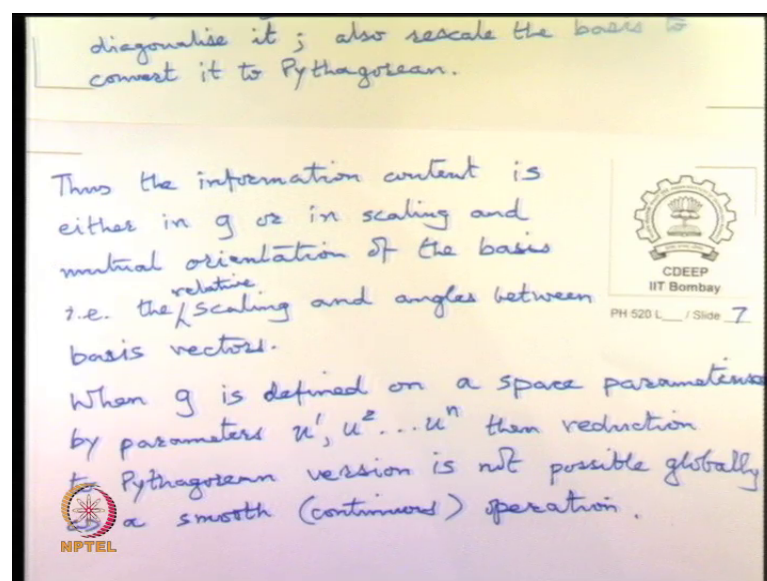 diagonalise it ; also rescale the basis to
convert it to Pythagorean.
Thus the information content is
either in g or in scaling and
mutual orientation of the basis
i.e. the relative scaling and angles between
basis vectors.
When g is defined on a space parametrised
by parameters u¹, u² ... uⁿ then reduction
to Pythagorean version is not possible globally
as a smooth (continuous) operation.
CDEEP
IIT Bombay
PH 520 L___ / Slide 7
NPTEL